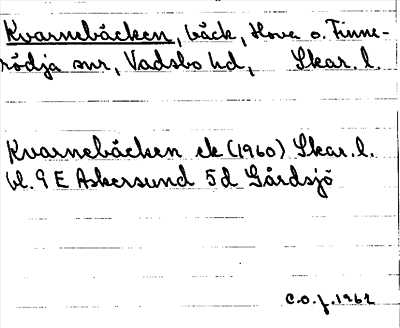 Kvarnebäcken, bäck, Hova o. Finne-
rödja snr, Vadsbo hd, Skar. l.
Kvarnebäcken ek (1960) Skar. l.
bl. 9 E Askersund 5d Gårdsjö
C.O.f. 1962